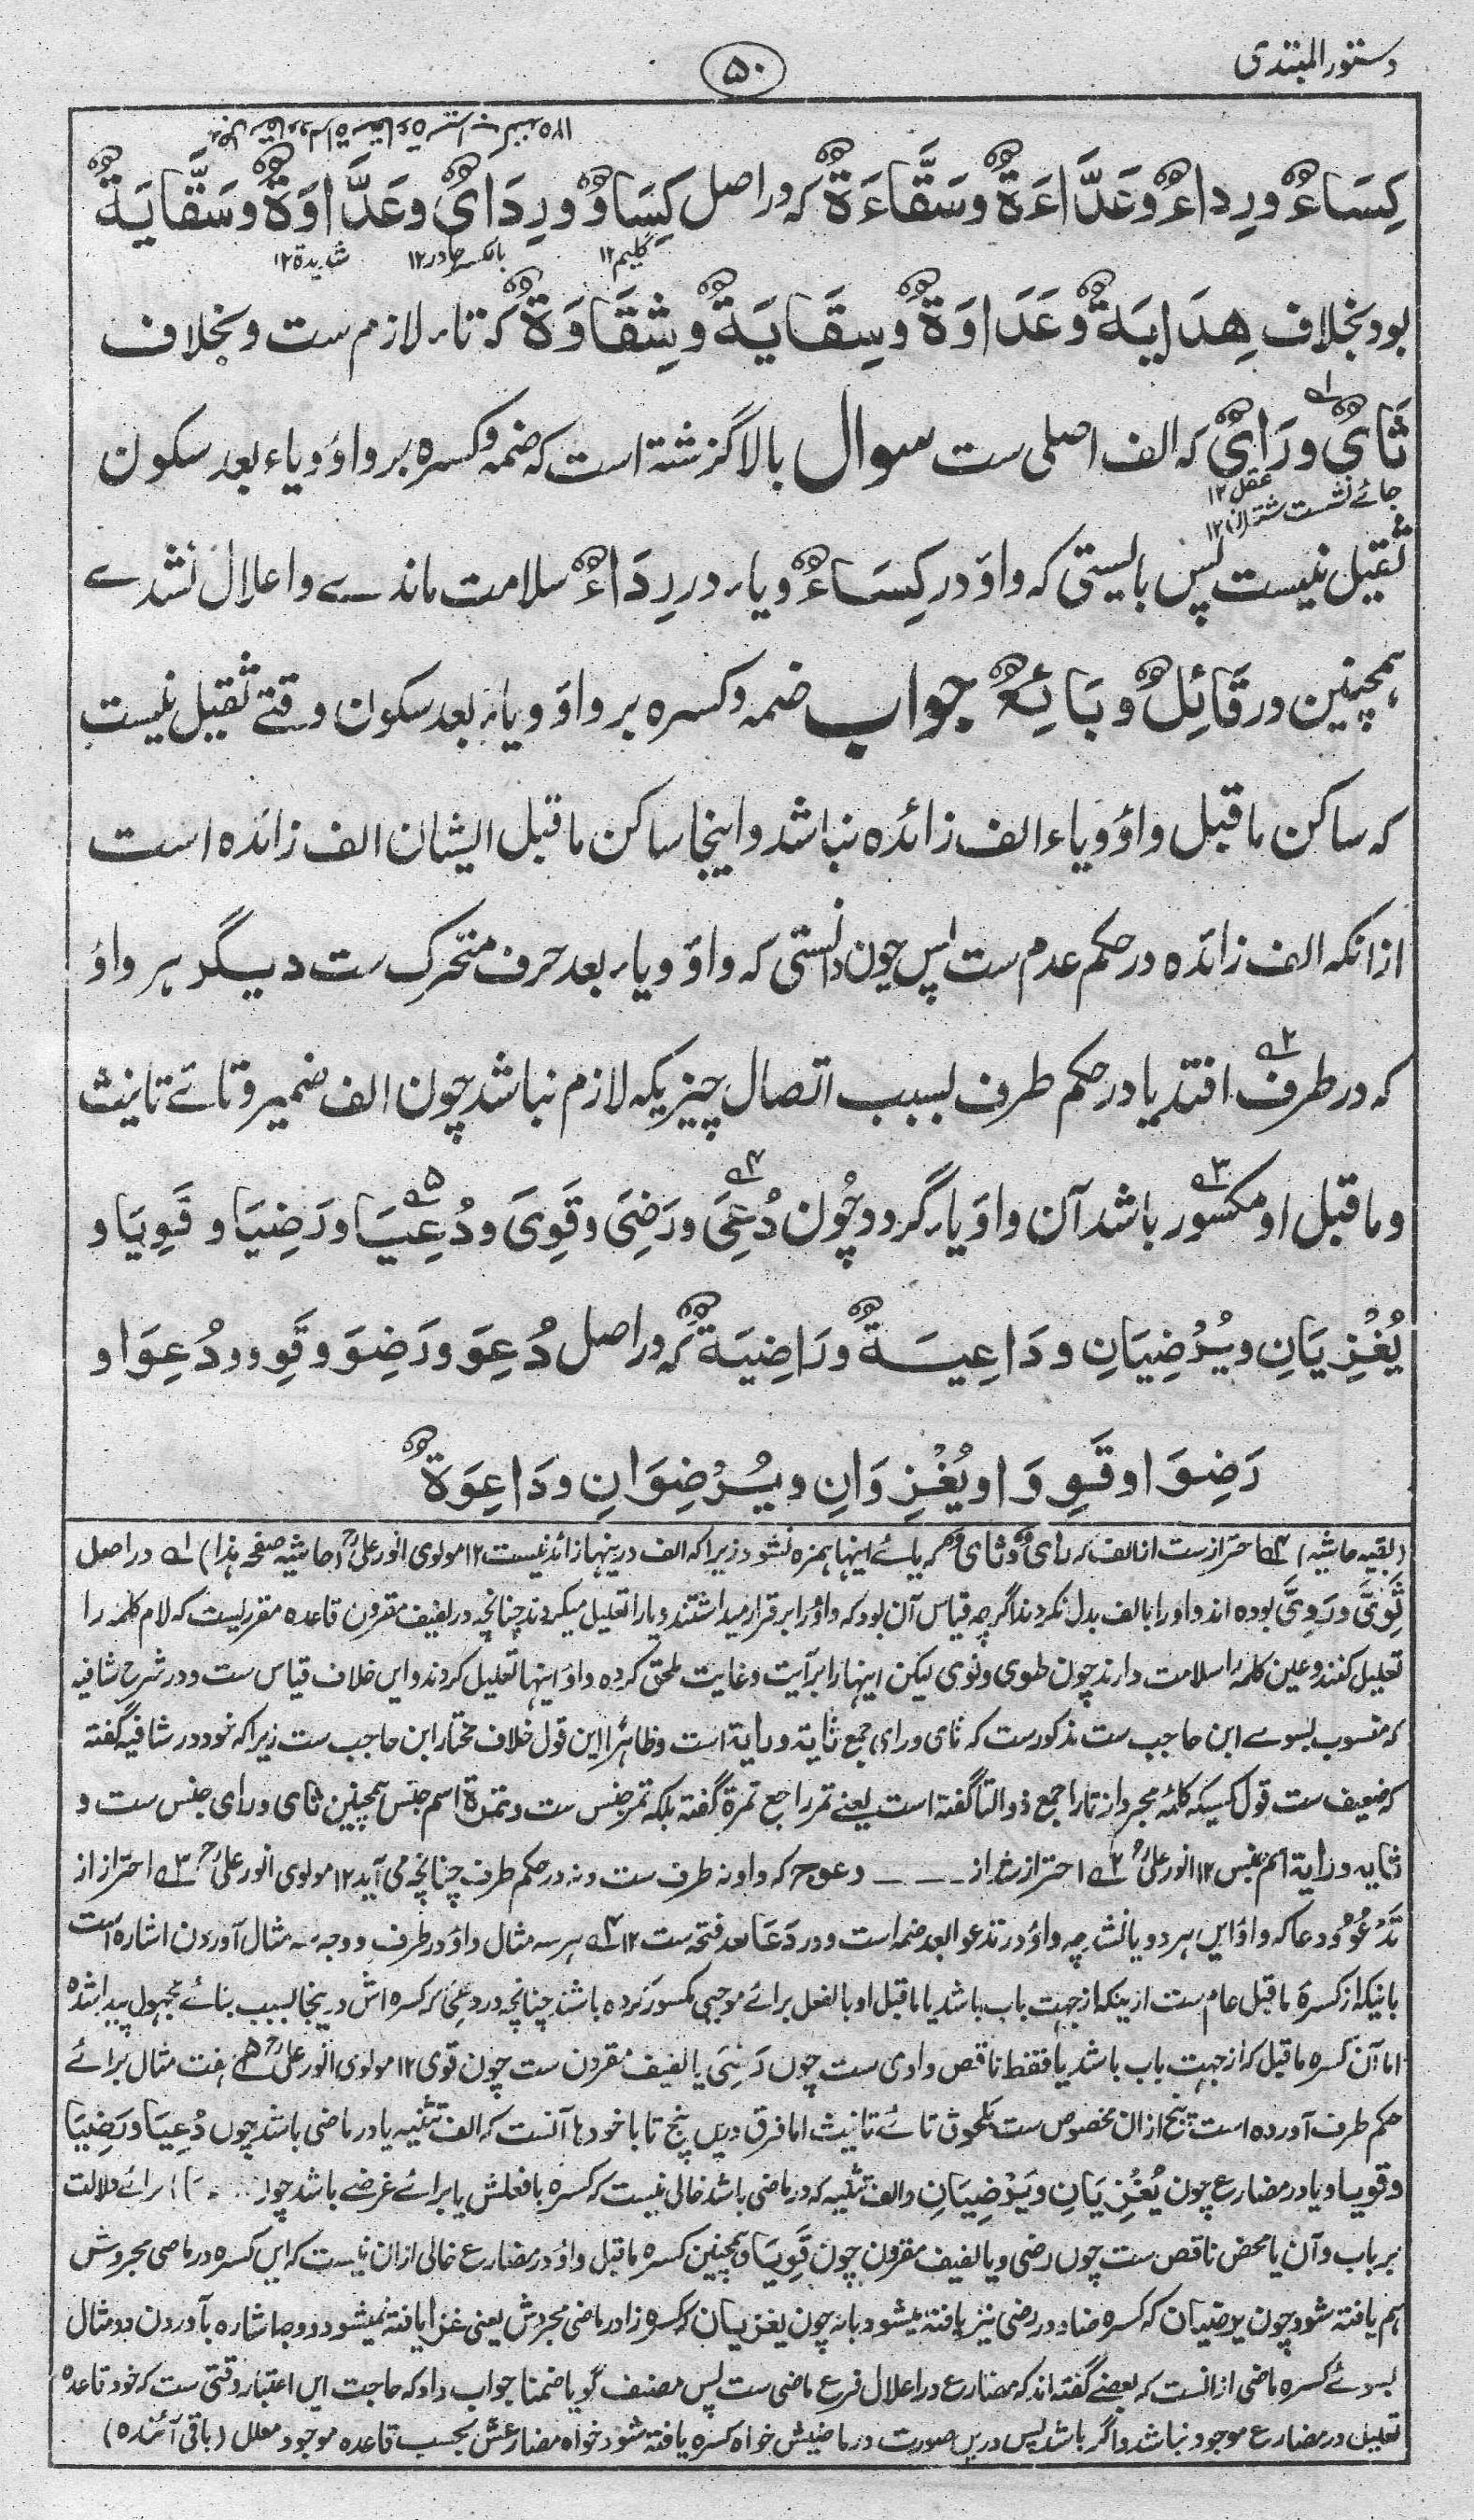 دستور المبتدی
۵۰
كِسَاءٌ ورِداءٌ وعَدَّاءَةٌ وسَقَّاءَةٌ که در اصل كِسَاوٌ ورِدَایٌ وعَدَّاوَةٌ وسَقَّايَةٌ
گلیم۱۲ بالکسر چادر۱۲
بود بخلاف هِدَايَةٌ وعَدَاوَةٌ وسِقَايَةٌ وشِقَاوَةٌ که تاء لازم ست و بخلاف
ثَایٌ ورَایٌ که الف اصلی ست سوال بالا گزشته است که ضمه وکسره بر واؤ ویاء بعد سکون
عقل۱۲
جائے نشست شتران۱۲
ثقیل نیست پس بایستی که واؤ در كِسَاءٌ ویاء در رِدَاءٌ سلامت ماندے واعلال نشدے
همچنین در قَائِلٌ وبَائِعٌ جواب ضمه وکسره بر واؤ ویاء بعد سکون وقتے ثقیل نیست
که ساکن ماقبل واؤ ویاء الف زائده نباشد واینجا ساکن ماقبل ایشان الف زائده است
ازانکه الف زائده در حکم عدم ست پس چون دانستی که واؤ ویاء بعد حرف متحرک ست دیگر هر واؤ
که در طرف افتد یا در حکم طرف بسبب اتصال چیزیکه لازم نباشد چون الف ضمیر وتائے تانیث
وماقبل او مکسور باشد آن واؤ یاء گردد چُون دُعِیَ ورَضِیَ وقَوِیَ ودُعِيَا ورَضِيَا وقَوِيَا و
يُغْزِيَانِ ويُرْضِيَانِ ودَاعِيَةٌ ورَاضِيَةٌ که در اصل دُعِوَ ورَضِوَ وقَوِوَ ودُعِوَا و
رَضِوَا وقَوِوَا ويُغْزِوَانِ ويُرْضِوَانِ ودَاعِوَةٌ
(بقیه حاشیه) احتراز ست از الف که رای وثای که یائے اینها همزه نشود زیرا که الف درینها زائد نیست ۱۲ مولوی انور علیؒ (حاشیه صفحه هذا) ۱ در اصل
ثَوِیَ ورَوِیَ بوده اند واو را بالف بدل کردند اگرچه قیاس آن بود که واؤ را برقرار میداشتند ویا را تعلیل میکردند چنانچه در لفیف مقرون قاعده مقرریست که لام کلمه را
تعلیل کنند وعین کلمه را سلامت دارند چون طوی ونوی لیکن اینها را بر آیت وغایت ملحق کرده واؤ اینها تعلیل کردند واین خلاف قیاس ست ودر شرح شافیه
که منسوب بسوے ابن حاجب ست مذکور ست که ثای ورای جمع ثایة ورایة است وظاهرا این قول خلاف مختار ابن حاجب ست زیرا که خود در شافیه گفته
که ضعیف ست قول کسیکه کلمه مجرد از تا را جمع ذوالتا گفته است یعنے تمر را جمع تمرة گفته بلکه تمر جنس ست وتمرة اسم جنس همچنین ثای ورای جنس ست و
ثایه ورایة اسم جنس ۱۲ انور علیؒ ۲ احتراز ست از ــ ــ ــ وعوج که واو نه طرف ست ونه در حکم طرف چنانچه می آید ۱۲ مولوی انور علیؒ ۳ احتراز از
تَدْعُوْ ودعا که واؤ این هر دو یا نشد چه واؤ در تدعو البعد ضمه است ودر دَعَا بعد فتحه ست ۱۲ ۴ هر سه مثال واؤ در طرف ووجه سه مثال آوردن اشاره است
بانیکه از کسرۀ ماقبل عام ست ازینکه از جهت باب باشد یا ماقبل او بالفعل برائے موجبی مکسور کرده باشند چنانچه در دُعِیَ که کسره اش دریجا بسبب بنائے مجهول پیدا شده
اما آن کسره ماقبل که از جهت باب باشد یا فقط ناقص وادی ست چون رَضِیَ یا لفیف مقرون ست چون قوی ۱۲ مولوی انور علیؒ ۵ هفت مثال برائے
حکم طرف آورده است پنج ازان مخصوص ست بلحوق تائے تانیث اما فرق درین پنج تا باخودها آنست که الف تثنیه یا در ماضی باشد چون دُعِيَا ورَضِيَا
وقویا ویا در مضارع چون يُغْزِيَانِ ويَرْضِيَانِ والف تثنیه که در ماضی باشد خالی نیست که کسره ما فعلش یا برائے غرضے باشد چون برائے دلالت
بر باب وآن یا محض ناقص ست چون رضی ویا لفیف مقرون چون قَوِيَا وهمچنین کسره ماقبل واؤ در مضارع خالی ازان نیست که این کسره در ماضی مجردش
هم یافته شود چون یرضیان که کسره ضاد در رضی نیز یافته میشود یا نه چون یغزیان که کسره زا در ماضی مجردش یعنی غزا یافته نمیشود ووجه اشاره بآوردن دو مثال
بسوئے کسره ماضی ازانست که بعضے گفته اند که مضارع در اعلال فرع ماضی ست پس مصنف گویا ضمنا جواب داد که حاجت این اعتبار وقتی ست که خود قاعده
تعلیل در مضارع موجود نباشد واگر باشد پس درین صورت در ماضیش خواه کسره یافته شود خواه مضارعش بحسب قاعده موجود معلل (باقی آئنده)